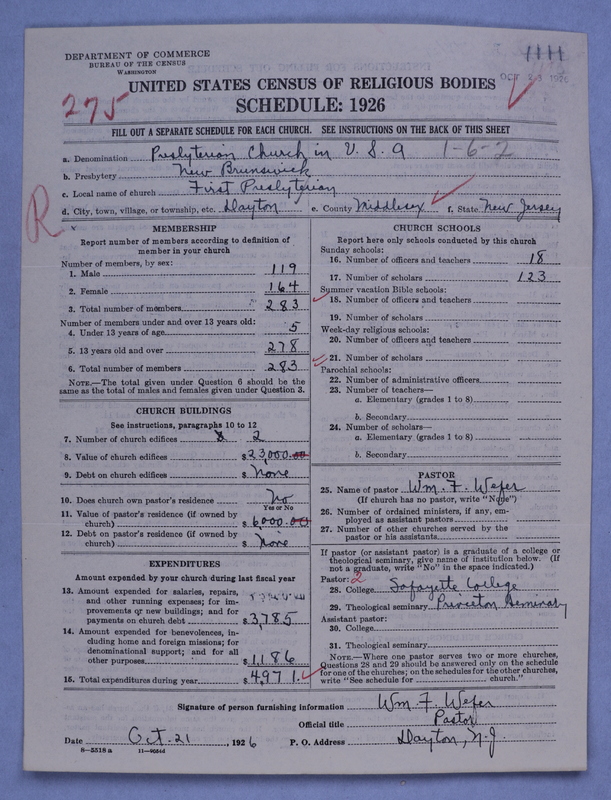 DEPARTMENT OF COMMERCE
BUREAU OF THE CENSUS
WASHINGTON
1111
OCT 23 1926
UNITED STATES CENSUS OF RELIGIOUS BODIES
275
SCHEDULE: 1926
FILL OUT A SEPARATE SCHEDULE FOR EACH CHURCH. SEE INSTRUCTIONS ON THE BACK OF THIS SHEET
a. Denomination Presbyterian Church in U. S. A 1-6-2
b. Presbytery New Brunswick
c. Local name of church First Presbyterian
R
d. City, town, village, or township, etc. Dayton e. County Middlesex f. State New Jersey
MEMBERSHIP
Report number of members according to definition of
member in your church
Number of members, by sex:
1. Male 119
2. Female 164
3. Total number of members 283
Number of members under and over 13 years old:
4. Under 13 years of age 5
5. 13 years old and over 278
6. Total number of members 283
NOTE.—The total given under Question 6 should be the
same as the total of males and females given under Question 3.
CHURCH BUILDINGS
See instructions, paragraphs 10 to 12
7. Number of church edifices 2
8. Value of church edifices $23,000.00
9. Debt on church edifices $ None
10. Does church own pastor's residence No
Yes or No
11. Value of pastor's residence (if owned by
church) $6000.00
12. Debt on pastor's residence (if owned by
church) $ None
EXPENDITURES
Amount expended by your church during last fiscal year
13. Amount expended for salaries, repairs,
and other running expenses; for im-
provements or new buildings; and for
payments on church debt $3,785
14. Amount expended for benevolences, in-
cluding home and foreign missions; for
denominational support; and for all
other purposes $1,186
15. Total expenditures during year $4,971.
CHURCH SCHOOLS
Report here only schools conducted by this church
Sunday schools:
16. Number of officers and teachers 18
17. Number of scholars 123
Summer vacation Bible schools:
18. Number of officers and teachers
19. Number of scholars
Week-day religious schools:
20. Number of officers and teachers
21. Number of scholars
Parochial schools:
22. Number of administrative officers
23. Number of teachers—
a. Elementary (grades 1 to 8)
b. Secondary
24. Number of scholars—
a. Elementary (grades 1 to 8)
b. Secondary
PASTOR
25. Name of pastor Wm. F. Wefer
(If church has no pastor, write "None")
26. Number of ordained ministers, if any, em-
ployed as assistant pastors
27. Number of other churches served by the
pastor or his assistants
If pastor (or assistant pastor) is a graduate of a college or
theological seminary, give name of institution below. (If
not a graduate, write "No" in the space indicated.)
Pastor: 2
28. College Lafayette College
29. Theological seminary Princeton Seminary
Assistant pastor:
30. College
31. Theological seminary
NOTE.—Where one pastor serves two or more churches,
Questions 28 and 29 should be answered only on the schedule
for one of the churches; on the schedules for the other churches,
write "See schedule for church."
Signature of person furnishing information Wm. F. Wefer
Official title Pastor
Date Oct. 21, 1926 P. O. Address Dayton, N.J.
8—5518 a 11—9054d